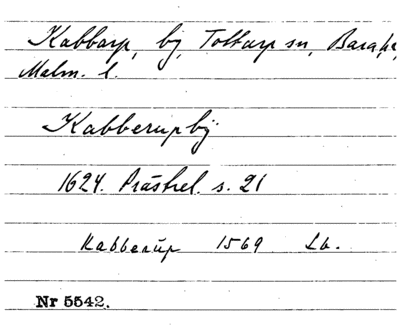 Kabbarp, by, Tottarp sn, Bara hd,
Malm. l.
Kabberup by
1624. Prästrel. s. 21
Kabberup 1569 Lb.
Nr 5542.